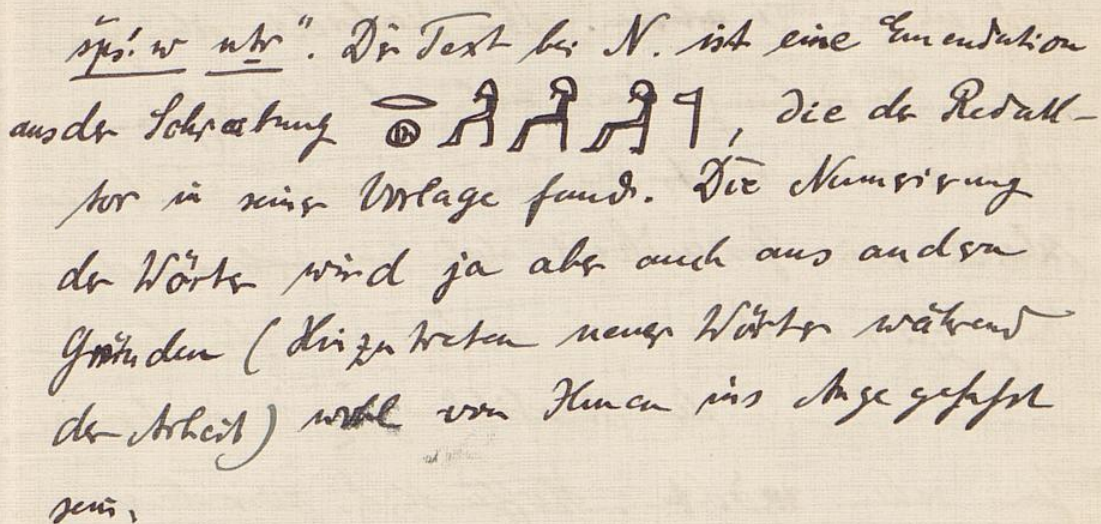 šps.w nṯr“. Der Text bei N. ist eine Emendation
aus der Schreibung 𓂋𓐍𓀻𓀻𓀻𓊹, die der Redak-
tor in seiner Vorlage fand. Die Numerierung
der Wörter wird ja aber auch aus andern
Gründen (Hinzutreten neuer Wörter während
der Arbeit) wohl von Ihnen ins Auge gefaßt
sein.